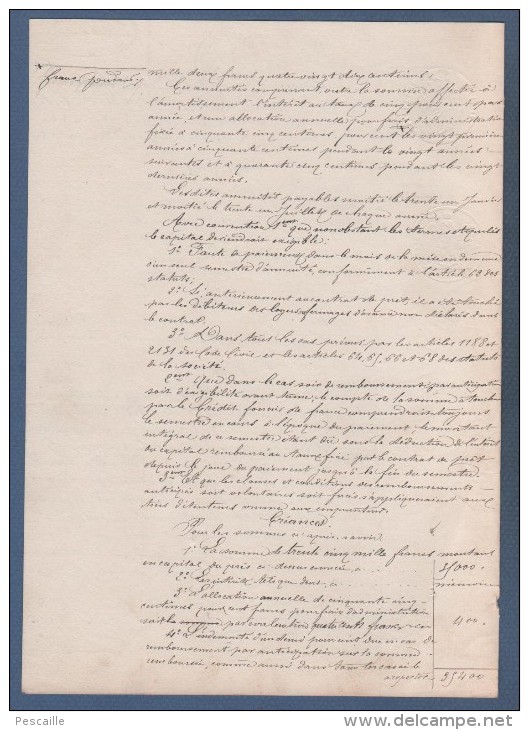 mille deux francs quatre vingt dix centimes.
Ces annuités comprennent outre la somme affectée à
l'amortissement l'intérêt au taux de cinq pour cent par
année et une allocation annuelle pour frais d'administration
fixée à cinquante cinq centimes pour cent les vingt premières
années à cinquante centimes pendant les vingt années
suivantes et à quarante cinq centimes pendant les vingt
dernières années.
Lesdites annuités payables moitié le trente un Janvier
et moitié le trente un Juillet de chaque année.
Avec convention 1ent que nonobstant les termes stipulés
le capital deviendrait exigible:
1º Faute de paiement dans le mois de la mise en demeure
d'un seul semestre d'annuité, conformément à l'article 62 des
statuts;
2º Si, antérieurement au contrat de prêt, il a été
par les débiteurs des loyers, fermages non déclarés dans
le contrat.
3º Dans tous les cas prévus par les articles 1188 et
2131 du Code Civil et les articles 64, 65, 66 et 68 des statuts
de la société
2ent Que dans le cas soit de remboursement par anticipation
soit d'exigibilité avant terme le compte de la somme à toucher
par le Crédit foncier de france comprendrait toujours
le semestre en cours à l'époque du paiement le montant
intégral de ce semestre étant dû sous la déduction de l'intérêt
du capital remboursé au taux fixé par le contrat de prêt
depuis le jour du paiement jusqu'à la fin du semestre
3ent Et que les clauses et conditions des remboursements
anticipés soit volontaires soit forcés s'appliqueraient aux
tiers détenteurs comme aux emprunteurs.
Créances
Pour les sommes ci après savoir
1º La somme de trente cinq mille francs montant
en capital du prêt ci dessus énoncé ci 35000.
2º Les intérêts tels que de droit, ci mémoire
3º L'allocation annuelle de cinquante cinq
centimes pour cent francs pour frais d'administration
soit par évaluation quatre cents francs ci 400.
4º L'indemnité d'un demi pour cent due en cas de
remboursement par anticipation sur la somme
remboursée, comme aussi dans tous les cas où le
à reporter. 35400